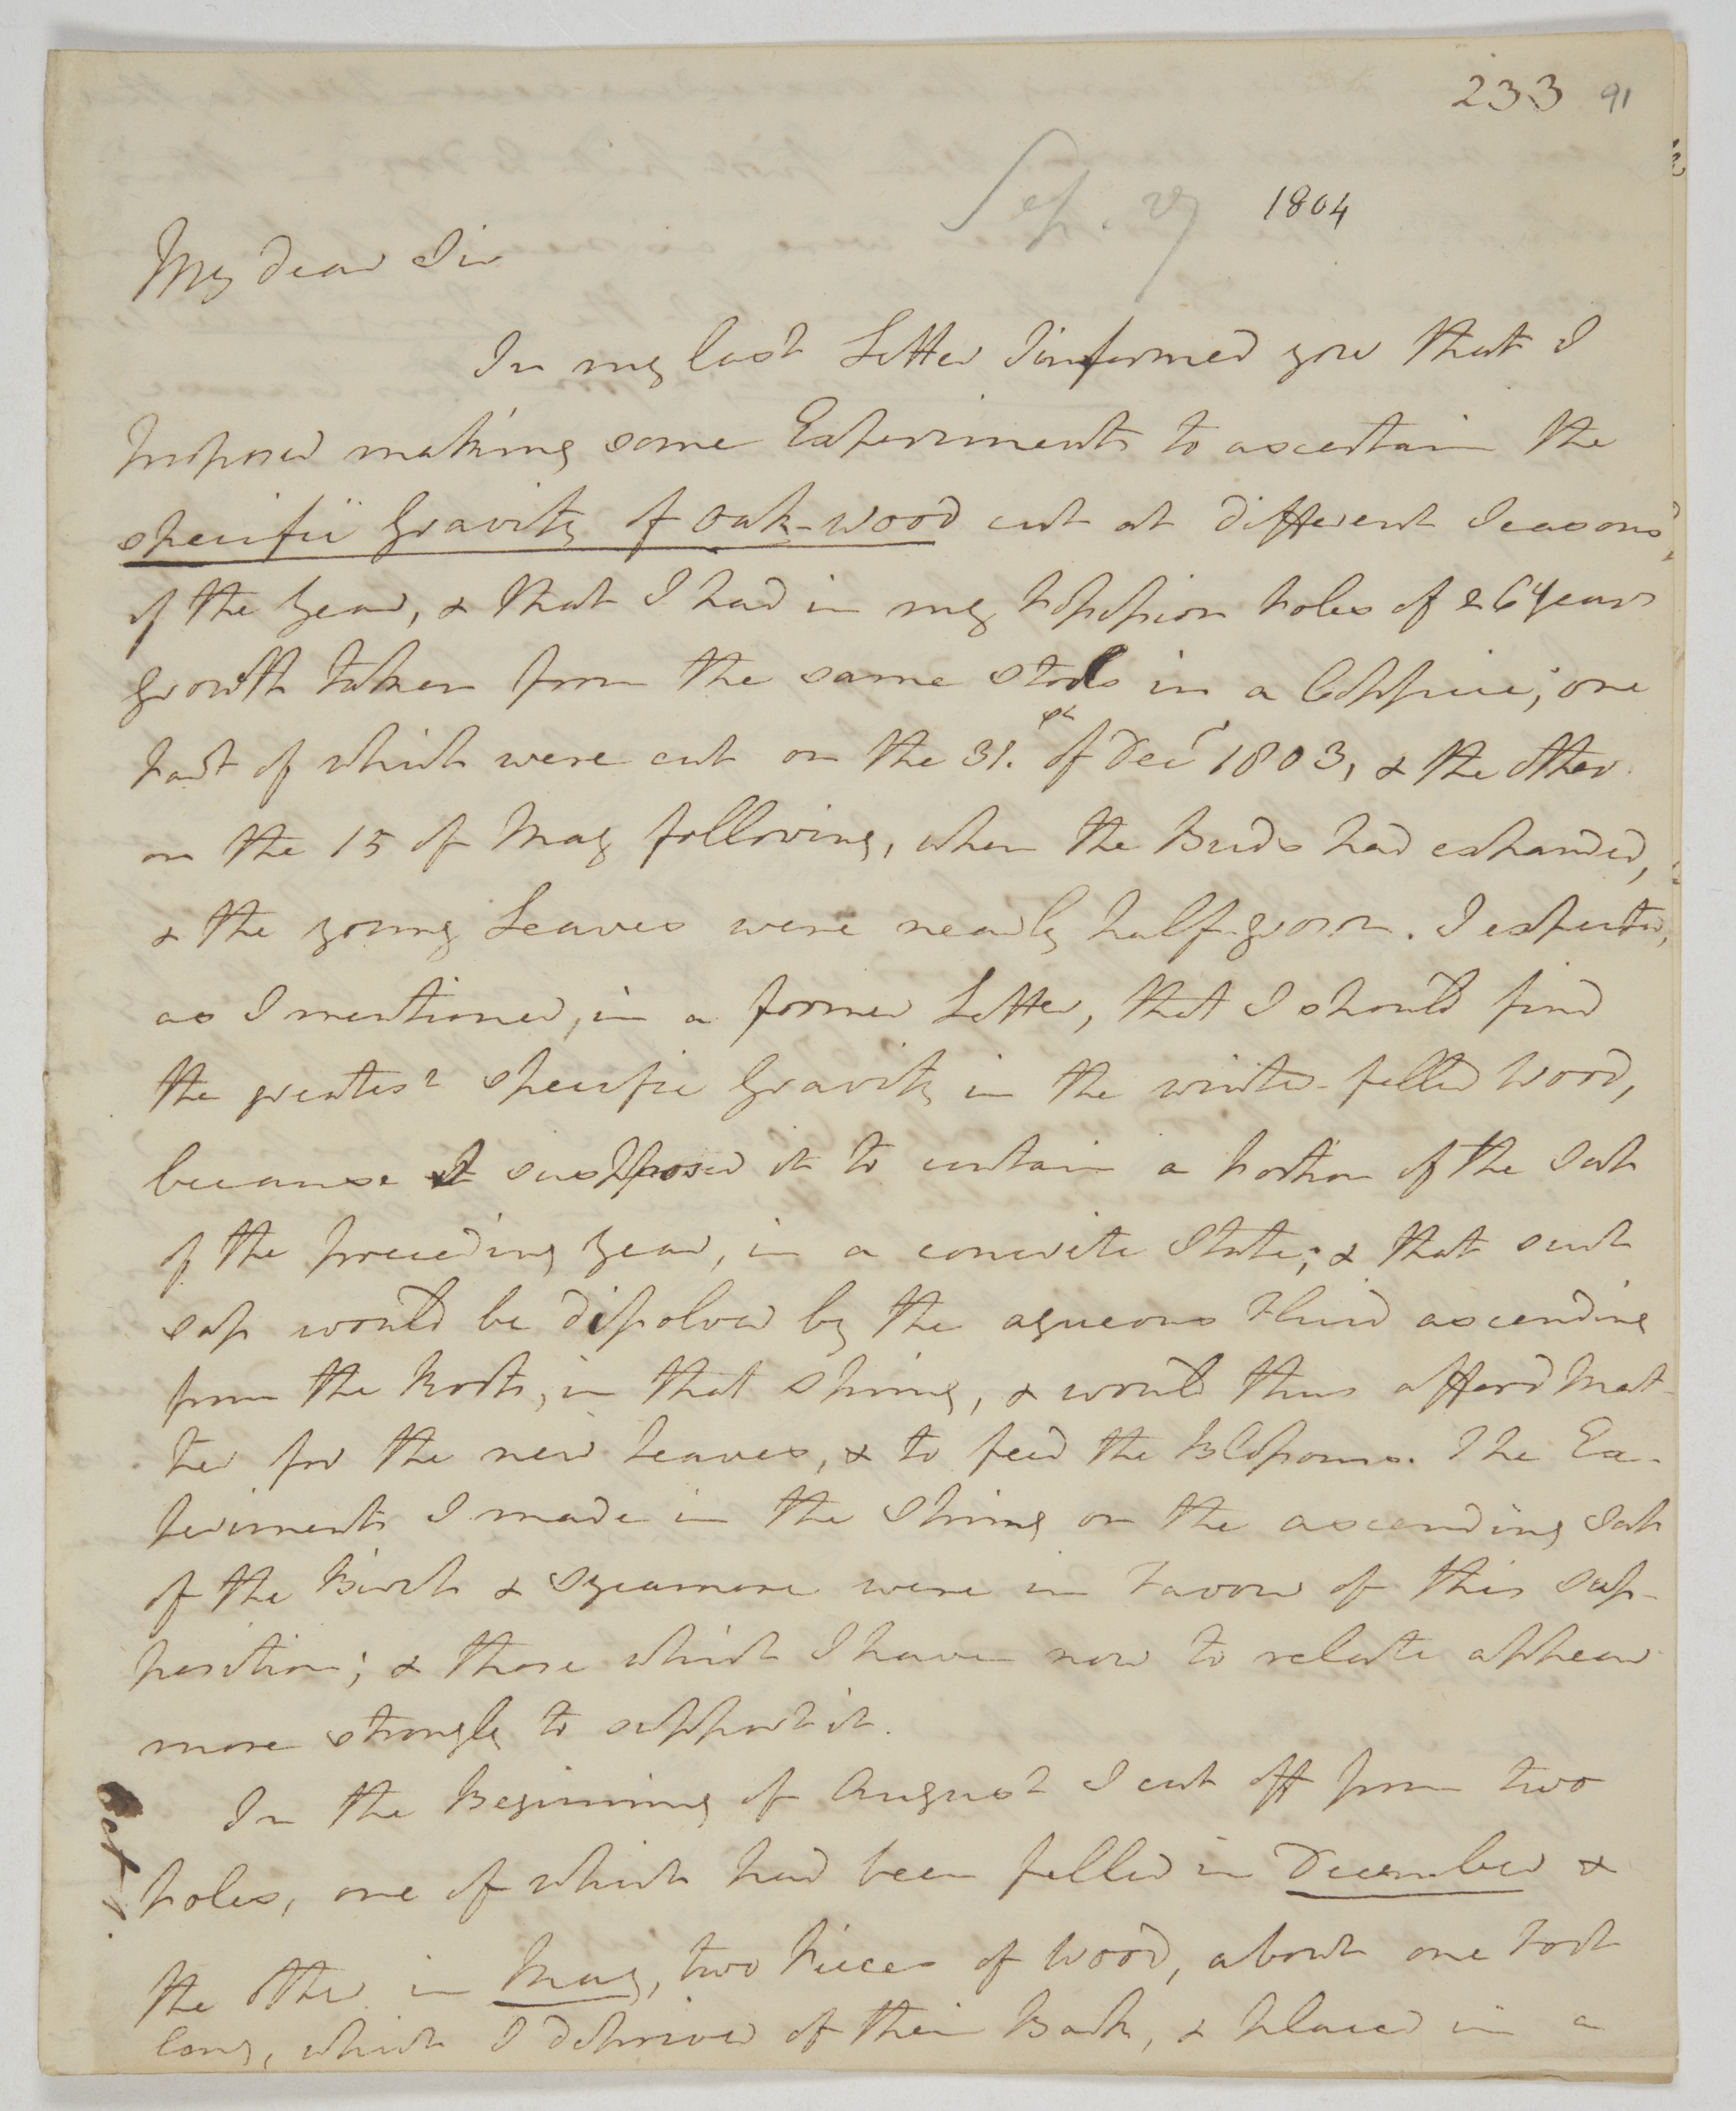 233 91
Sep. 27 1804
My dear Sir
In my last Letter I informed you that I
proposed making some Experiments to ascertain the
specific Gravity of Oak-wood cut at different Seasons
of the Year, & that I had in my possession poles of 26 years
growth taken from the same stools in a Coppice; one
part of which were cut on the 31.st of Decr 1803, & the other
on the 15 of May following, when the Buds had expanded,
& the young Leaves were nearly half-grown. I expected,
as I mentioned, in a former Letter, that I should find
the greatest specific Gravity in the winter-felled Wood,
because I supposed it to contain a portion of the Sap
of the preceeding Year, in a concrete State; & that such
sap would be dissolved by the aqueous Fluid ascending
from the Roots, in that Spring, & would thus afford Mat-
ter for the new Leaves, & to feed the Blossoms. The Ex-
periments I made in the Spring on the ascending Sap
of the Birch & Sycamore were in Favour of this sup-
position; & those which I have now to relate appear
more strongly to support it.
In the Beginning of August I cut off from two
poles, one of which had been felled in December &
the other in May, two Pieces of Wood, about one Foot
long, which I deprived of their Bark, & placed in a